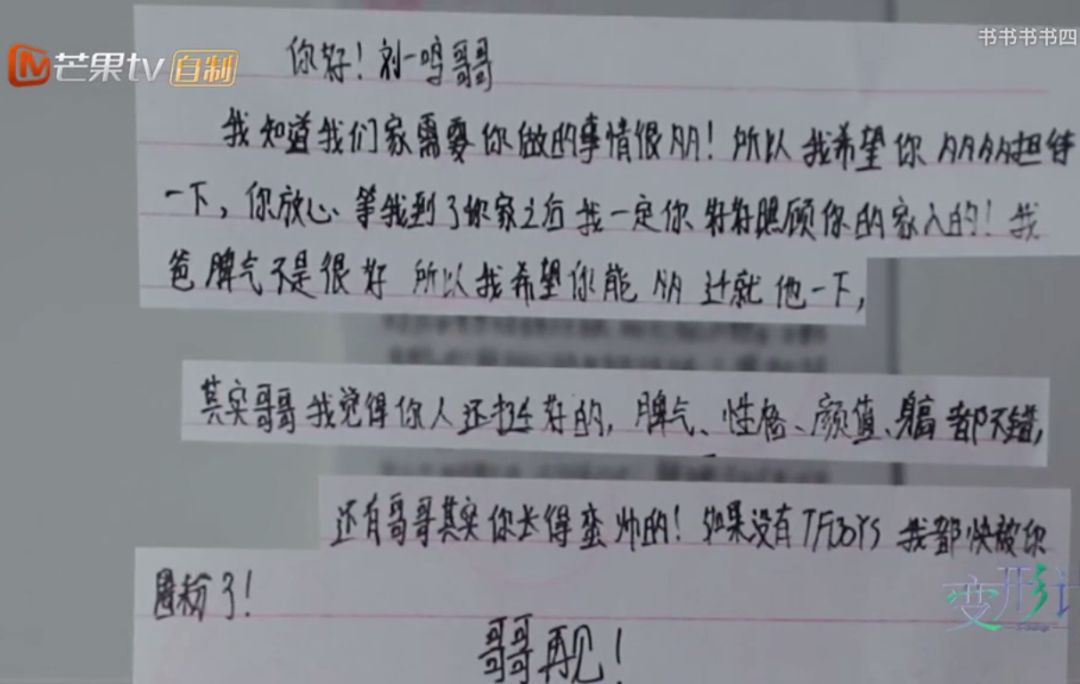 芒果tv 自制
书书书书四
你好！刘一鸣哥哥
我知道我们家需要你做的事情很多！所以我希望你多多担待
一下，你放心、等我到了你家之后我一定你好好照顾你的家人的！我
爸脾气不是很好 所以我希望你能 多 迁就 他一下，
其实哥哥我觉得你人还挺好的，脾气、性格、颜值、身高都不错，
还有哥哥其实你长得蛮帅的！如果没有TFBOYS 我都快被你
圈粉了！
变形计
哥哥再见！